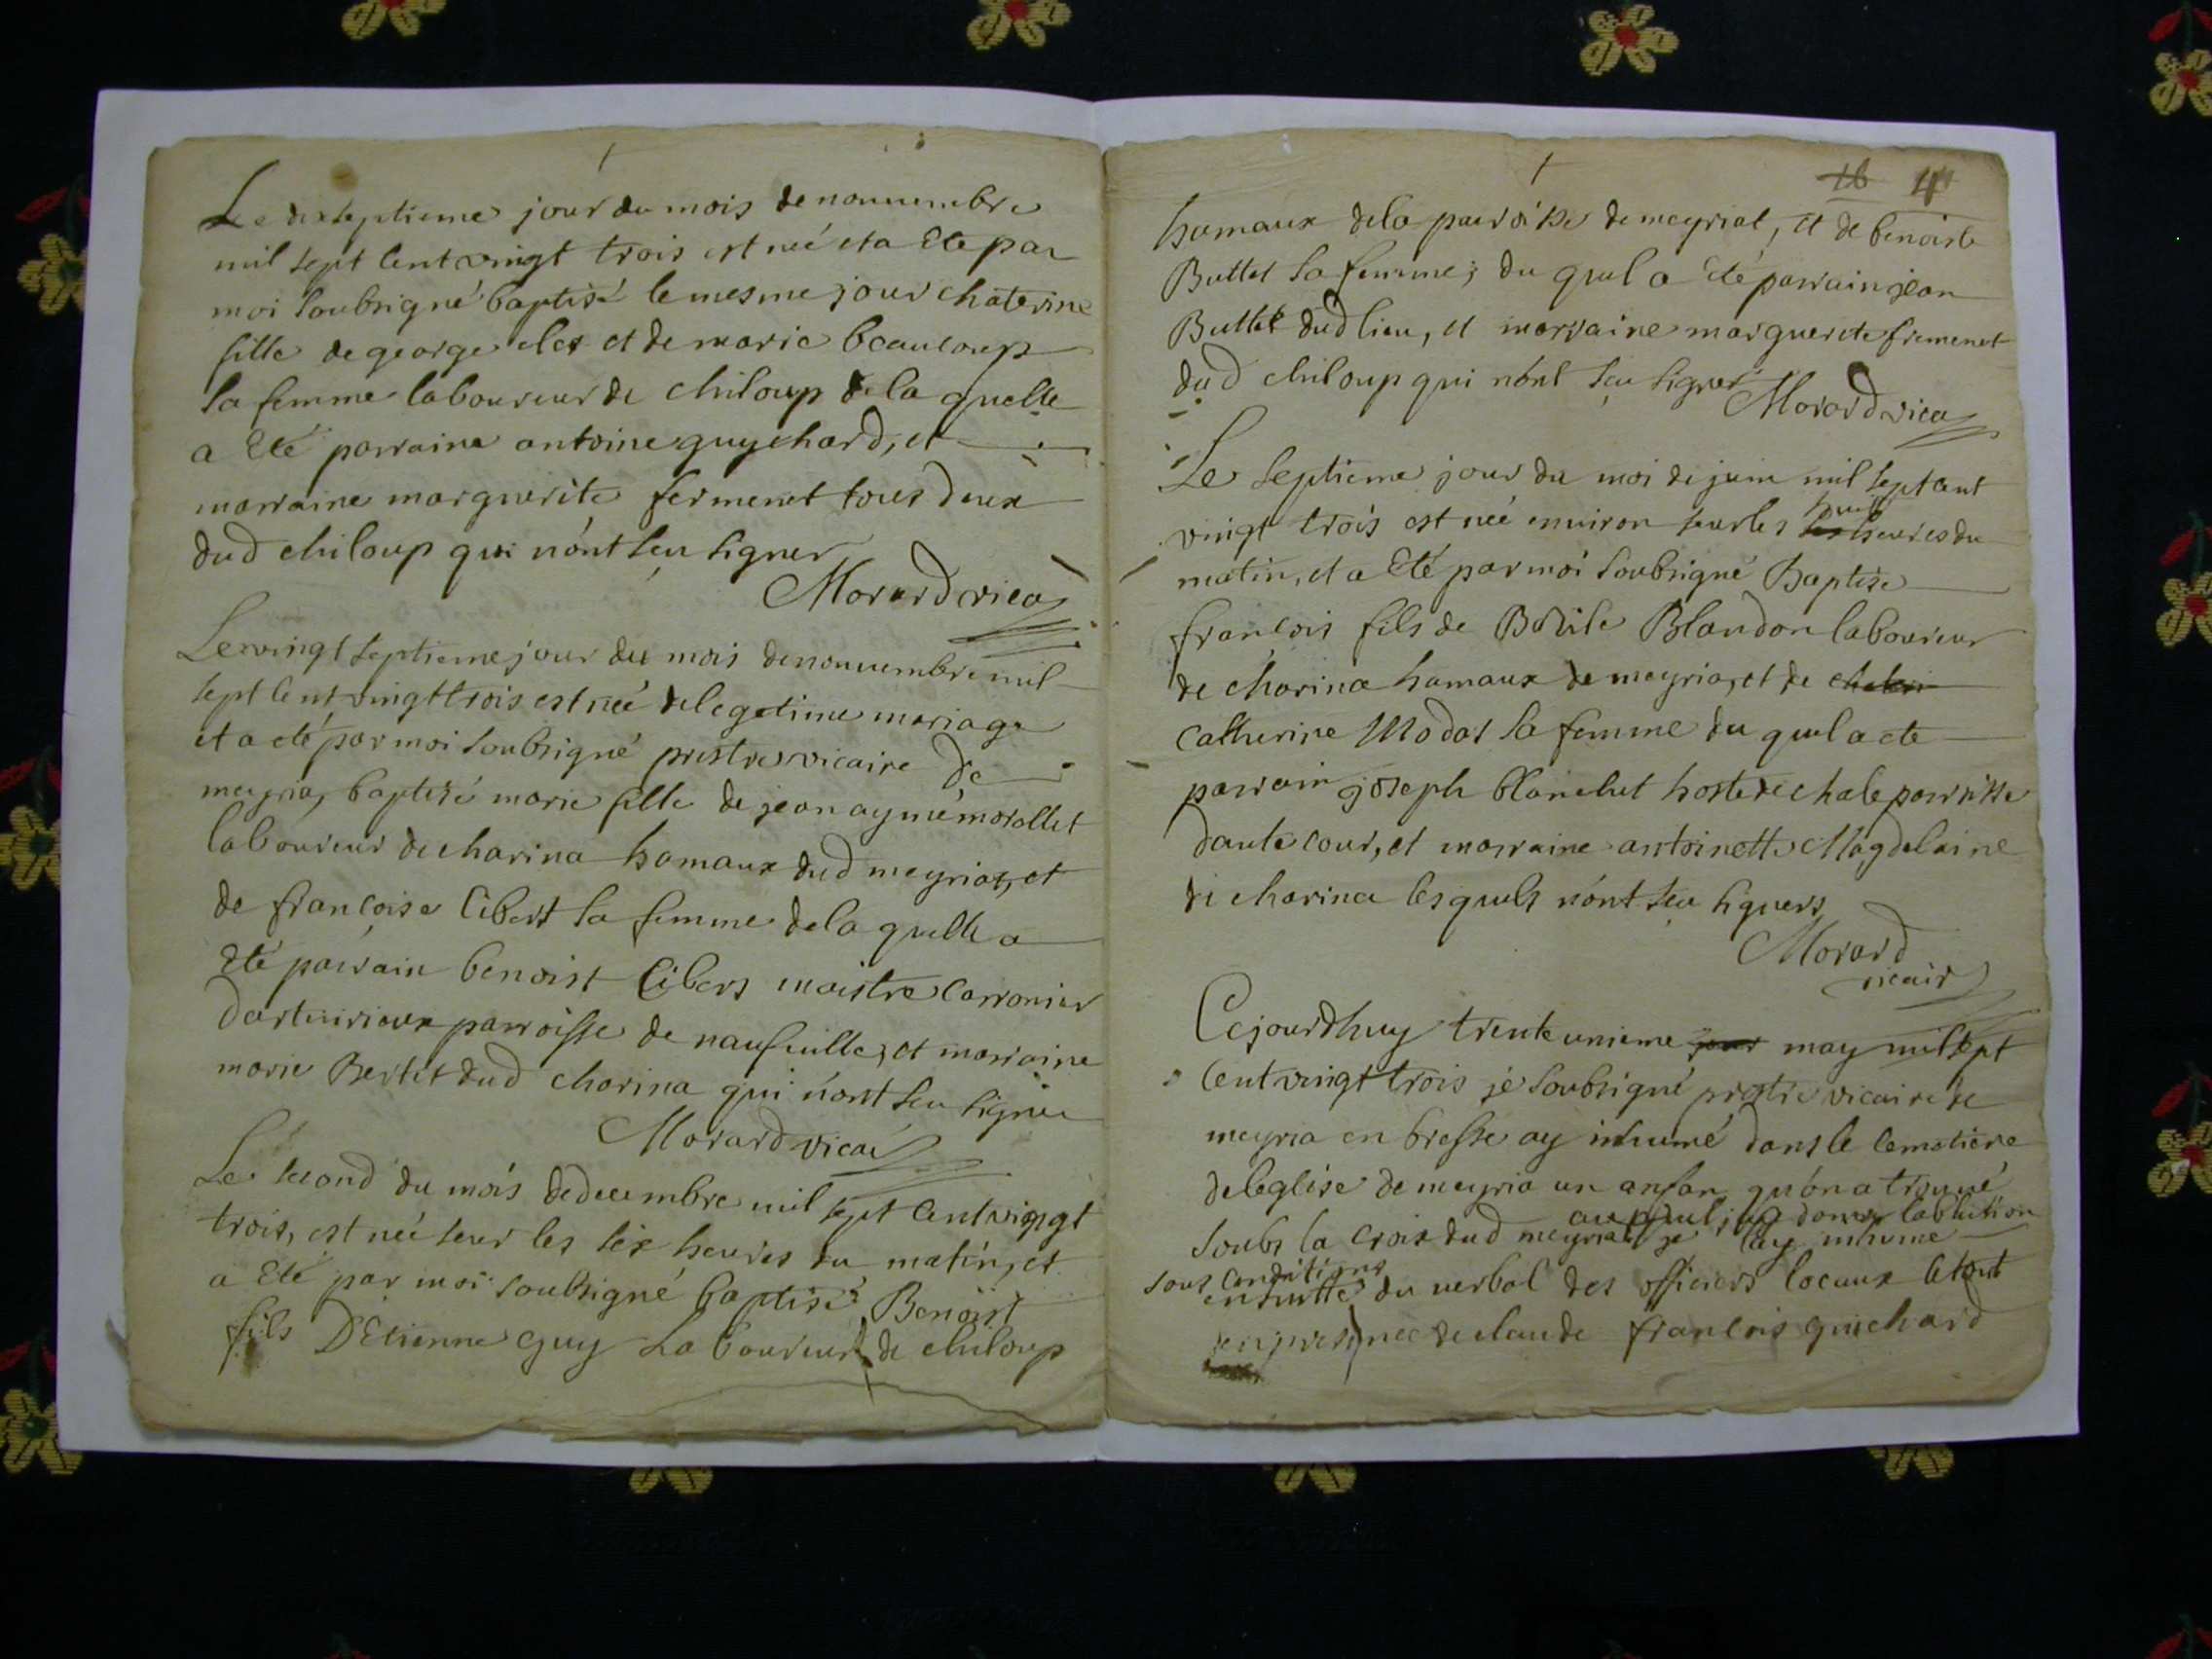 Le dixseptieme jour du mois de nouuembre
mil sept cent vingt trois est neé et a Eté par
moi soubsigné baptisé le mesme jour chaterine
fille de george et de marie beaucoup
sa femme laboureur de chiloup de la quelle
a Eté parraine antoine guychard, et
marraine marguerite fermenet tous deux
dud chiloup qui n'ont seu signer
Morard vica
Le vingt septieme jour du mois de nouuembre mil
sept cent vingt trois est neé de legetime mariage
et a eté par moi soubsigné prestre vicaire de
meyria, baptisé marie fille de jean aymé morellet
laboureur de charina hamaux dud meyriat, et
de francoise libert sa femme de la quelle a
Eté parrain benoist libers maistre carronier
parroisse de naufuille, et marraine
marie Bertet dud charina qui n'ont seu signer
Morard vicai
Le second du mois de decembre mil sept cent vingt
trois, est neé seur les six heures du matin, et
a Eté par moi soubsigné baptisé Benoist
fils D'Etienne guy Laboureur de chiloup
16 4
hamaux de la parroisse de meyriat, et de benoiste
Buttet sa femme; du quel a Eté parrain jean
Buttet dud lieu, et marraine marguerite fremenet
dud chiloup qui n'ont seu signer
Morard vica
Le septieme jour du moi de juin mil sept cent
vingt trois est neé enuiron seur les huit heures du
matin, et a Eté par moi soubsigné Baptisé
francois fils de Blandon laboureur
de charina hamaux de meyria, et de
catherine Modas sa femme du quel a ete
parrain joseph blanchet hoste de chale parroisse
dautecour, et marraine antoinette Magdelaine
de charina lesquels n'ont seu signers
Morard
vicair
Cejourdhuy trente unieme jour may mil sept
cent vingt trois je soubsigné prestre vicaire de
meyria en bresse ay inhumé dans le cemetiere
de leglise de meyria un anfan qu'on a trouué
au quel jay donné lablution
soubs la croix dud meyriat je lay inhumé
sous conditions
ensuitte du verbal des officiers locaux le tout
en presence de claude francois guichard